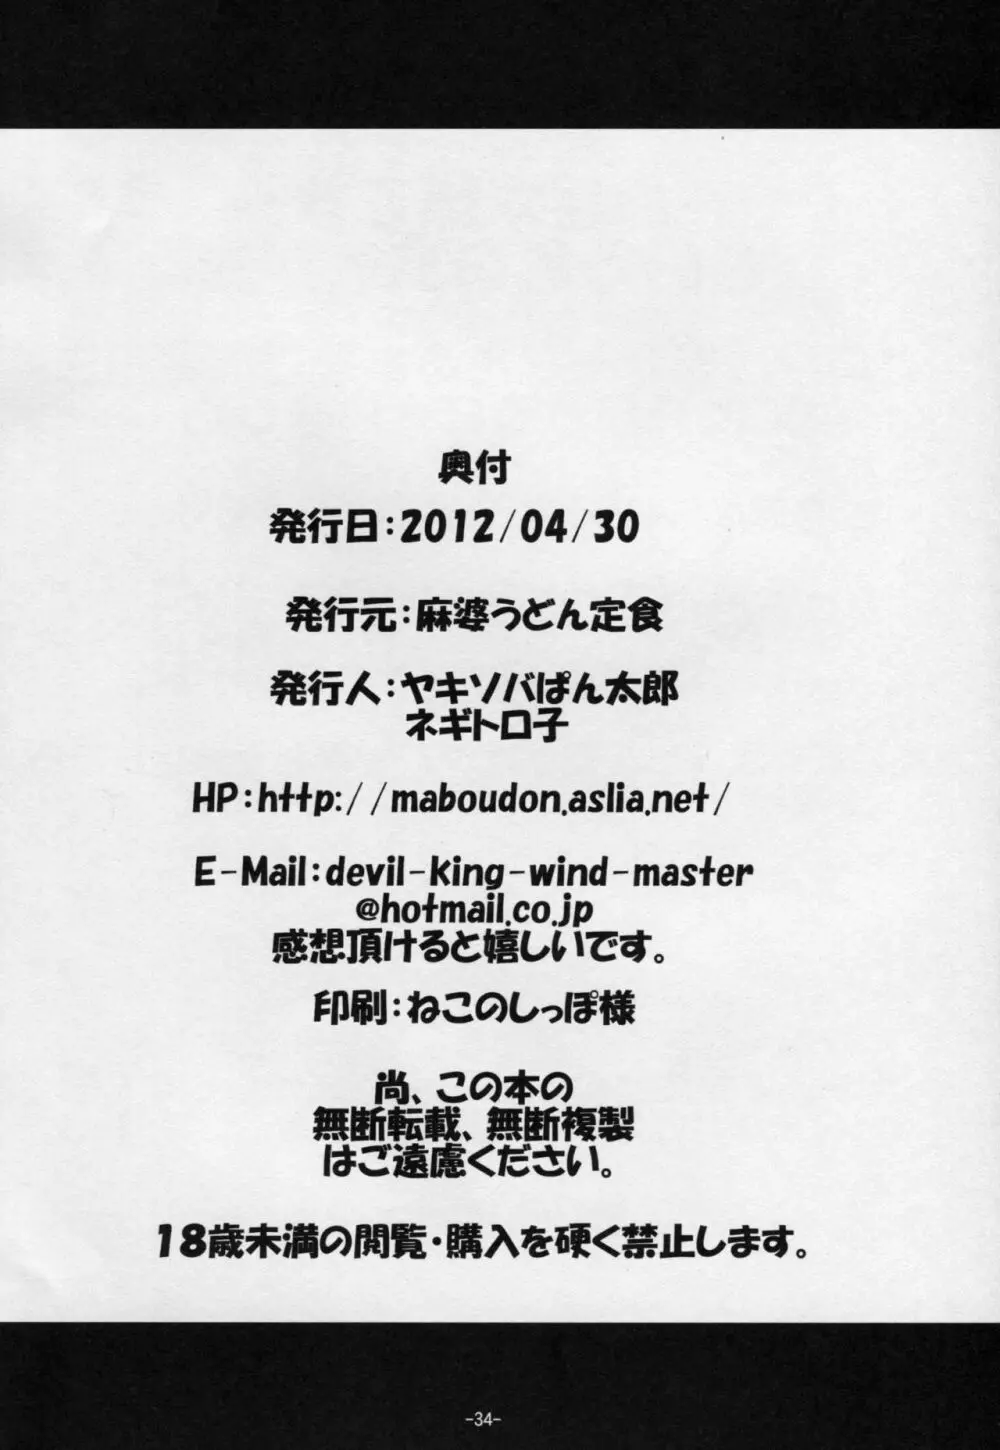 奥付
発行日：2012/04/30
発行元：麻婆うどん定食
発行人：ヤキソバぱん太郎
ネギトロ子
HP：http://maboudon.aslia.net/
E-Mail：devil-king-wind-master
@hotmail.co.jp
感想頂けると嬉しいです。
印刷：ねこのしっぽ様
尚、この本の
無断転載、無断複製
はご遠慮ください。
18歳未満の閲覧・購入を硬く禁止します。
-34-